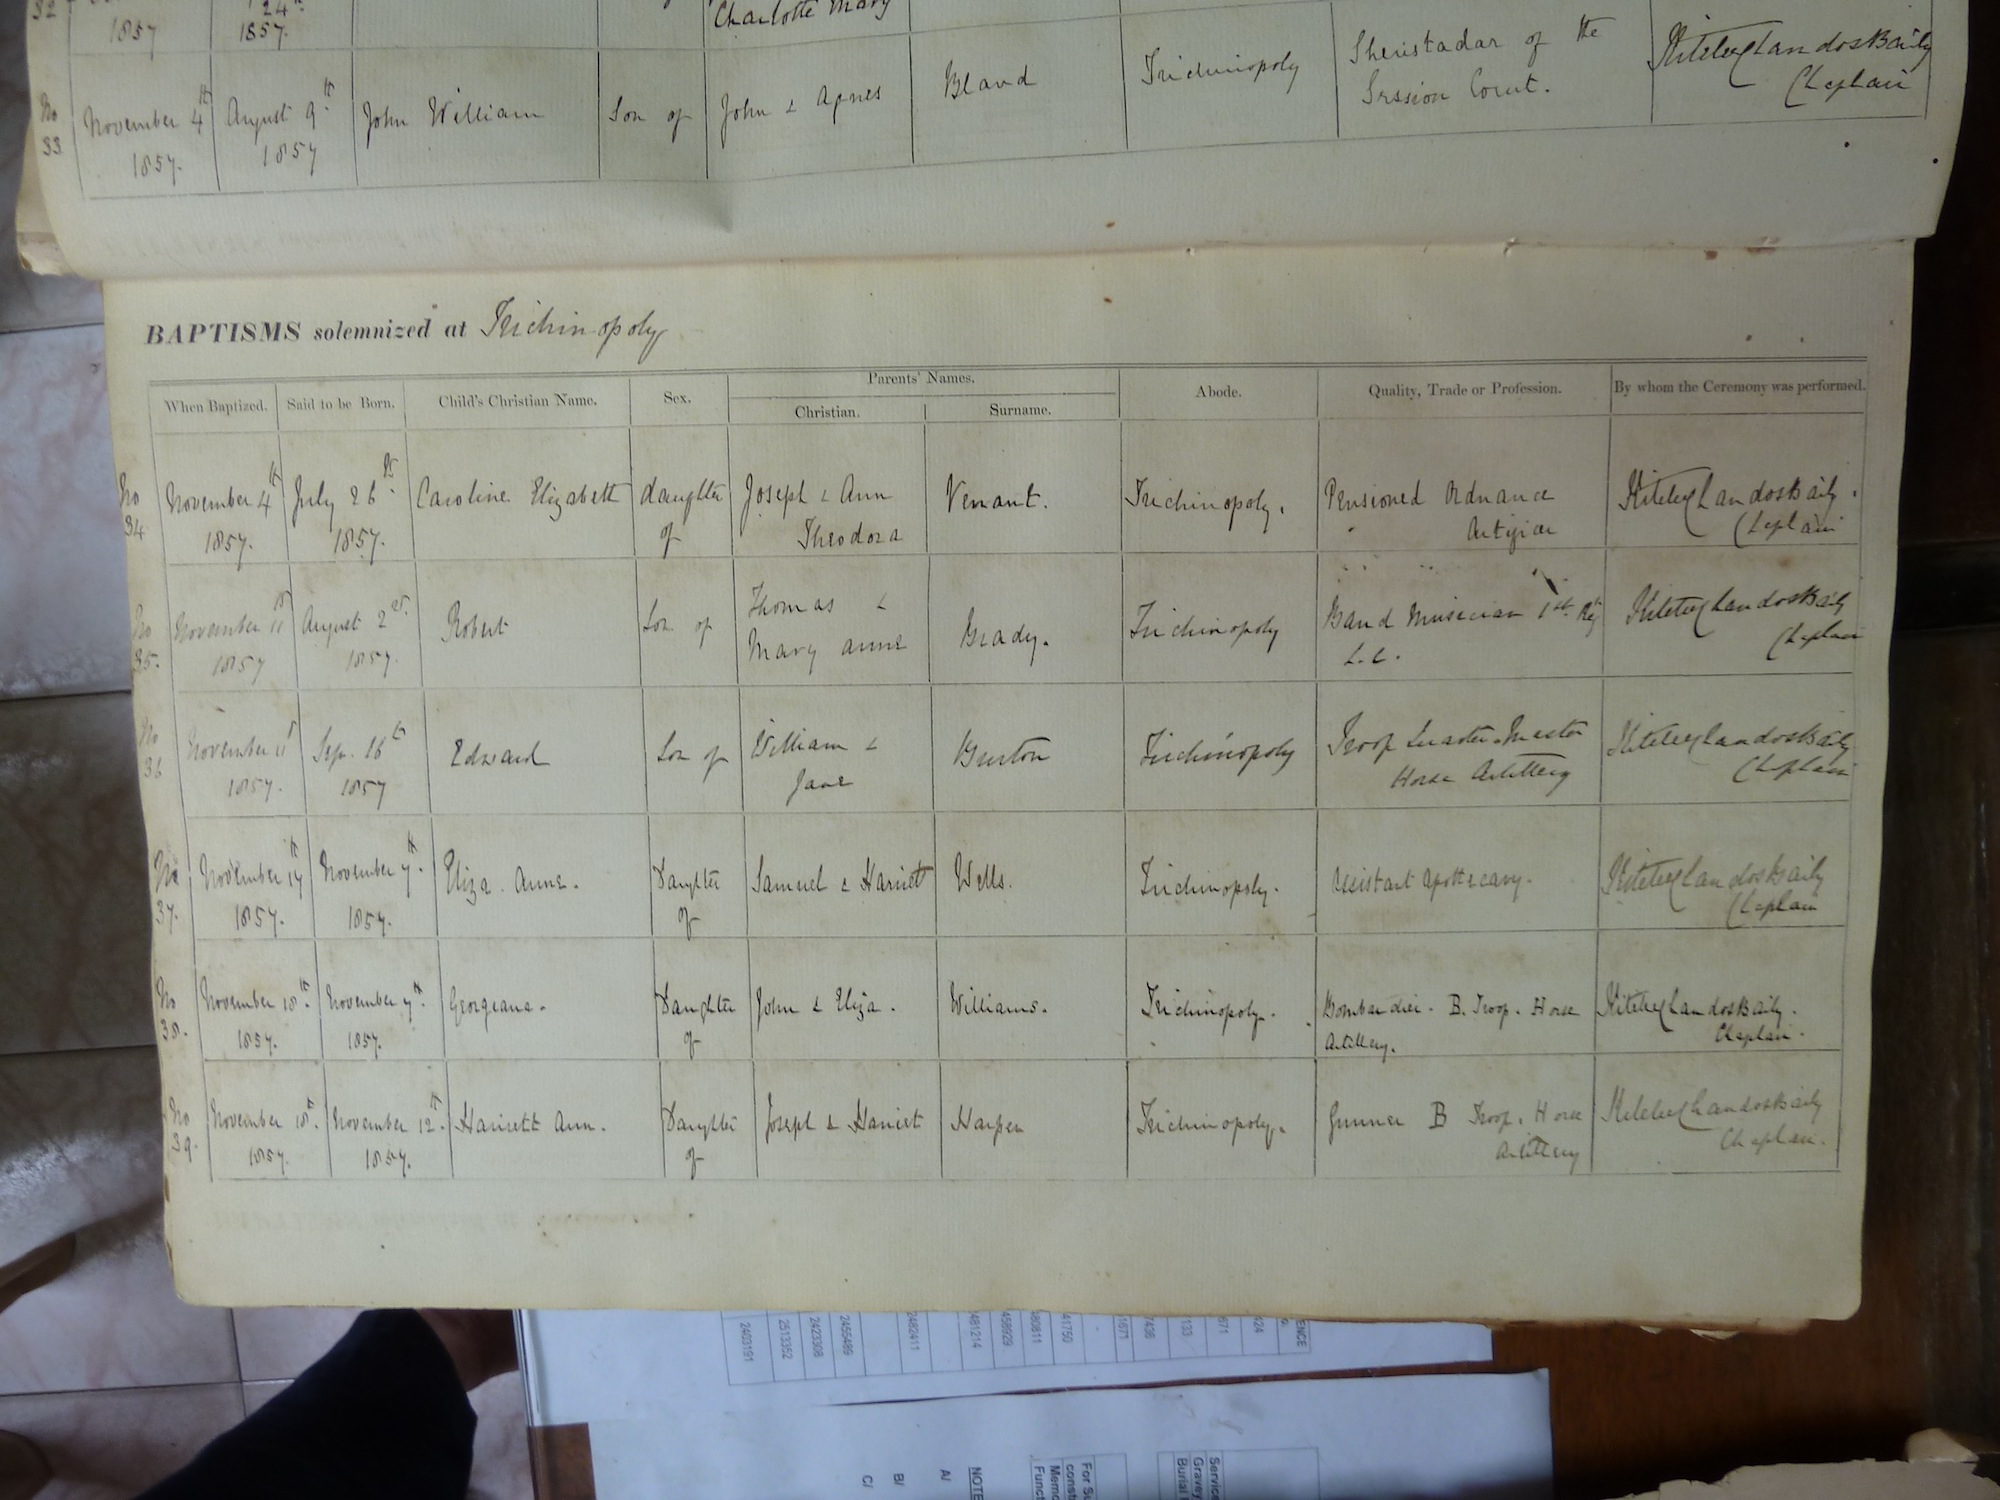 32
1857
24th
1857.
Charlotte Mary
No 33
November 4th 1857.
August 9th 1857
John William
Son of
John & Agnes
Bland
Trichinopoly
Sheristadar of the Session Court.
Chaplain
BAPTISMS solemnized at Trichinopoly
When Baptized.
Said to be Born.
Child's Christian Name.
Sex.
Parents' Names.
Christian.
Surname.
Abode.
Quality, Trade or Profession.
By whom the Ceremony was performed.
No 34
November 4th 1857.
July 26th 1857.
Caroline Elizabeth
daughter of
Joseph & Ann Theodora
Venant.
Trichinopoly.
Pensioned Ordnance Artificer
Chaplain
No 35.
November 11th 1857
August 2nd 1857.
Robert
Son of
Thomas & Mary Anne
Grady.
Trichinopoly
Band Musician 1st Regt L.C.
Chaplain
No 36
November 11th 1857.
Sep. 16th 1857
Edward
Son of
William & Jane
Burton
Trichinopoly
Troop Quarter Master Horse Artillery
Chaplain
No 37.
November 14th 1857.
November 7th. 1857.
Eliza Anne.
Daughter of
Samuel & Harriett
Wells.
Trichinopoly.
Assistant Apothecary.
Chaplain
No 38.
November 18th 1857.
November 7th. 1857.
Georgeana.
Daughter of
John & Eliza.
Williams.
Trichinopoly.
Bombardier. B. Troop. Horse Artillery.
Chaplain.
No 39.
November 18th 1857.
November 12th. 1857.
Harriett Ann.
Daughter of
Joseph & Harriet
Harper
Trichinopoly.
Gunner B Troop. Horse Artillery
Chaplain.
2403191
2513352
2423308
2455489
2482411
481214
458929
580811
41750
1671
7436
133
671
424
ENCE
C/
B/
A/
NOTE
Service
Gravey
Burial